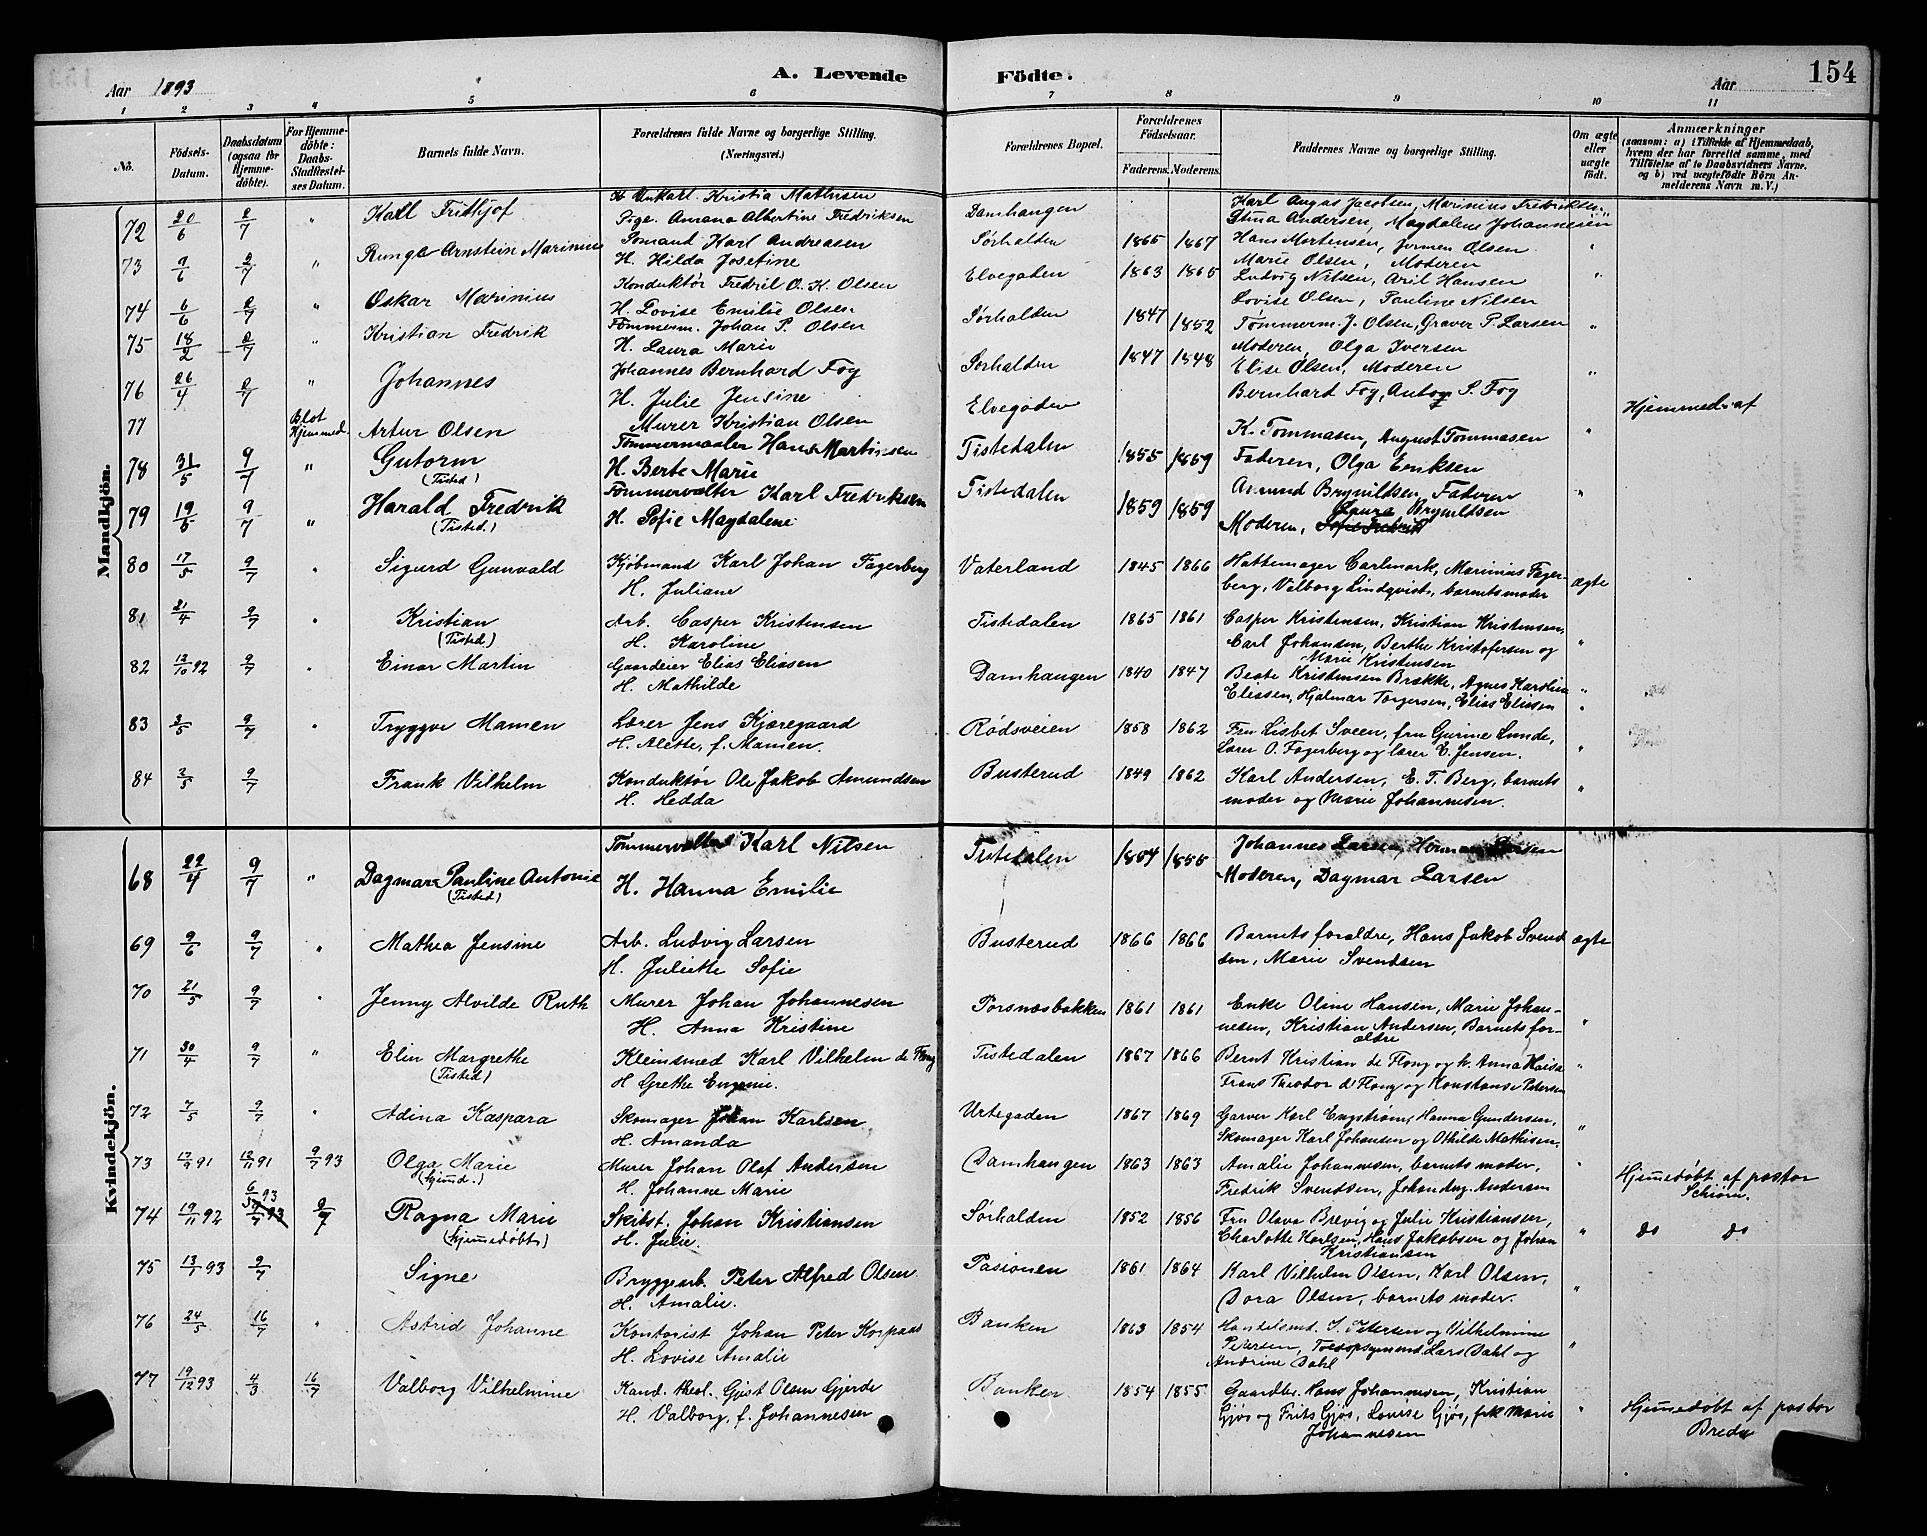 Aar 1893
A. Levende Födte.
Aar
154
1 2 3 4 5 6 7 8 9 10 11
No.
Födsels-Datum.
Daabsdatum (ogsaa for Hjemme-döbte).
For Hjemme-döbte: Daabs-Stadfæstel-ses Datum.
Barnets fulde Navn.
Forældrenes fulde Navne og borgerlige Stilling. (Næringsvei.)
Forældrenes Bopæl.
Forældrenes Födselsaar.
Faderens. Moderens.
Faddernes Navne og borgerlige Stilling.
Om ægte eller uægte födt.
Anmærkninger
(saasom: a) i Tilfælde af Hjemmedaab, hvem der har forrettet samme, med Tilföielse af to Daabsvidners Navne, og b) ved uægtefödte Börn An-melderens Navn m. V.)
Mandkjön.
72 20/6 2/7 " Karl Frithjof Unkarl. Kristia Mathisen
Pige Amana Albertine Fredriksen Damhaugen Karl Jacobsen, Marinius Fredriksen
Stina Andersen, Magdalene Johannesen
73 9/6 2/7 " Arnstein Marinius Sømand Karl Andreasen
H. Hilda Josefine Sørhalden 1865 1867 Hans Mortensen, Olsen "
Marie Olsen, Moderen
74 6/6 2/7 " Oskar Marinius Konduktør Fredrik O. K. Olsen
H. Lovise Emilie Olsen Elvegaden 1863 1865 Ludvig Nilsen, Aril Hansen "
Lovise Olsen, Pauline Nilsen
75 18/2 2/7 " Kristian Fredrik Tømmerm. Johan P. Olsen
H. Laura Marie Sørhalden 1847 1852 Tømmerm. J. Olsen, Graver P. Larsen "
Moderen, Olga Iversen
76 26/4 2/7 " Johannes Johannes Bernhard Fog
H. Julie Jensine Sorhalden 1847 1848 Elise Olsen, Moderen "
Bernhard Fog, Anton S. Fog
77 Blot Hjemmed. Artur Olsen Murer Kristian Olsen Elvegaden Hjemmed. af
78 31/5 9/7 " Gutorm (Tisted) Tømmermaaler Hans Martinsen
H. Berte Marie Tistedalen 1855 1859 K. Tommasen, August Tommasen "
Faderen, Olga Eriksen
79 19/5 9/7 " Harald Fredrik (Tisted.) Tømmervalter Karl Fredriksen
H. Sofie Magdalene Tistedalen 1859 1859 Amund Brynildsen, Faderen "
Moderen, Laura Brynildsen
80 17/5 9/7 " Sigurd Gunvald Kjøbmand Karl Johan Fagerberg
H. Juliane Vaterland 1845 1866 Hattemager Carlmark, Marinius Fager-
berg, Valborg Lindqvist, barnets moder ægte
81 21/4 9/7 " Kristian (Tisted.) Arb. Casper Kristensen
H. Karoline Tistedalen 1865 1861 Casper Kristensen, Kristian Kristensen,
Carl Johansen, Berthe Kristofersen og
Marie Kristensen "
82 12/10 92 9/7 " Einar Martin Gaardeier Elias Eliasen
H. Mathilde Damhaugen 1840 1847 Beate Kristensen Brække, Agnes Karoline
Eliasen, Hjalmar Torgersen, Elias Eliasen "
83 3/5 9/7 " Tryggve Mamen Lærer Jens Kjæregaard
H. Alette, f. Mamen. Rødsveien 1858 1862 Fru Lisbet Sveen, fru Gurine Lunde,
Lærer O. Fagerberg og lærer E. Jensen. "
84 3/5 9/7 Frank Vilhelm Konduktør Ole Jakob Amundsen
H. Hedda Busterud 1849 1862 Karl Andersen, E. T. Berg, barnets
moder og Marie Johannesen. "
Kvindekjön.
68 22/4 9/7 " Dagmar Pauline Antonie (Tisted) Tømmervalter Karl Nilsen
H. Hanna Emilie Tistedalen 1854 1855 Johannes Larsen, Herman Larsen
Moderen, Dagmar Larsen
69 9/6 9/7 " Mathea Jensine Arb. Ludvig Larsen
H. Juliette Sofie Busterud 1866 1866 Barnets foræledre, Hans Jakob Svend
sen, Marie Svendsen ægte
70 21/5 9/7 " Jenny Alvilde Ruth Murer Johan Johannesen
H. Anna Kristine Porsnæsbakken 1861 1861 Enke Oline Hansen, Marie Johan-
nesen, Kristian Andersen, Barnets for-
ældre "
71 30/4 9/7 " Elin Margrethe (Tisted) Kleinsmed Karl Vilhelm de Flong
H Grethe Eugenie. Tistedalen 1867 1866 Bernt Kristian de Flong og h. Anna Maisa
Frans Theodor de Flong og Konstanse Petersen "
72 7/5 9/7 " Adina Kaspara Skomager Johan Karlsen
H. Amanda Urtegaden 1867 1869 Garver Karl Engstrøm, Hanna Gundersen,
Skomager Karl Johansen og Othilde Mathisen. "
73 17/9 91 12/11 91 9/7 93 Olga Marie (hjemd.) Murer Johan Olaf Andersen
H. Johanne Marie Damhaugen 1863 1863 Amalie Johannesen, barnets moder,
Fredrik Svendsen, Johan Aug. Andersen " Hjemmedøbt af pastor
Schiørn.
74 19/11 92 6/1 93 9/7 Ragna Marie (hjemmedøbt) Skibst. Johan Kristiansen
H. Julie. Sørhalden 1852 1856 Fru Olava Brevig og Julie Kristiansen,
Charlotte Karlsen, Hans Jakobsen og Johan
Kristiansen " do do
75 13/1 93 9/7 Signe Bryggearb. Peter Alfred Olsen
H. Amalie. Pasionen 1861 1864 Karl Vilhelm Olsen, Karl Olsen,
Dora Olsen, barnets moder. "
76 24/5 16/7 " Astrid Johanne Kontorist Johan Peter Korpaas
H. Lovise Amalie Banken 1863 1854 Handelsmd. S. Petersen og Vilhelmine
Petersen, Toldopsynsmd Lars Dahl og
Andrine Dahl "
77 19/12 93 4/3 16/7 Valborg Vilhelmine Kand. theol. Gjest Olsen Gjerde
H. Valborg, f. Johannesen Banken 1854 1855 Gaardbr. Hans Johannesen, Kristian
Gjøs og Frits Gjøs, Lovise Gjøs, frk Marie
Johannesen " Hjemmedøbt af pastor
Breda